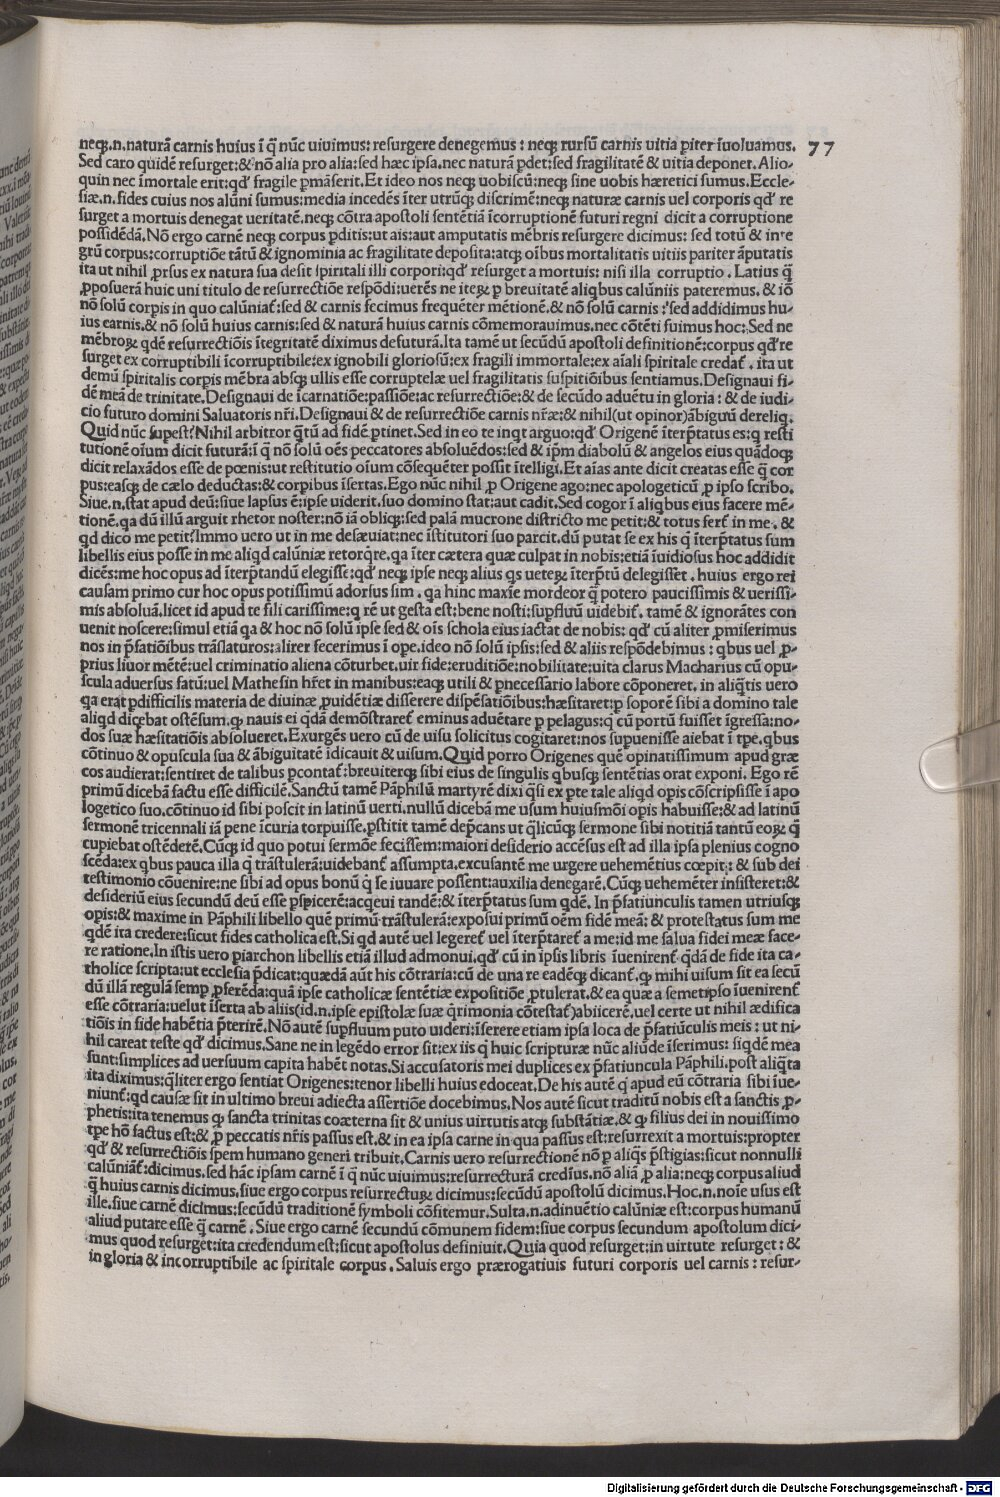 neqꝫ.n.naturã carnis huius ĩ q̃ nũc uiuimus: resurgere denegemus: neqꝫ rursũ carnis uitia pariter ĩuoluamus. 77
Sed caro quidẽ resurget:& nõ alia pro alia:sed hæc ipsa.nec naturã ꝑdet:sed fragilitatẽ & uitia deponet.Alio-
quin nec ĩmortale erit:qd' fragile pꝑmãserit.Et ideo nos neqꝫ uobiscũ:neqꝫ sine uobis hæretici sumus.Eccle-
siæ.n.fides cuius nos alũni sumus:media incedẽs ĩter utrũqꝫ discrimẽ:neqꝫ naturæ carnis uel corporis qd' re
surget a mortuis denegat ueritatẽ.neqꝫ cõtra apostoli sentẽtiã ĩcorruptionẽ futuri regni dicit a corruptione
possidẽdã.Nõ ergo carnẽ neqꝫ corpus ꝑditis:ut ais:aut amputatis mẽbris resurgere dicimus: sed totũ & inte
grũ corpus:corruptiõe tãtũ & ignominia ac fragilitate deposita:atqꝫ oĩbus mortalitatis uitiis pariter ãputatis
ita ut nihil ꝓrsus ex natura sua desit spiritali illi corpori:qd' resurget a mortuis: nisi illa corruptio. Latius q̃
ꝓposuerã huic uni titulo de resurrectiõe respõdi:uerẽs ne iteꝝ ꝑ breuitatẽ aliqbus calũniis pateremus. & iõ
nõ solũ corpis in quo calũniat̃:sed & carnis fecimus frequẽter mẽtionẽ.& nõ solũ carnis: sed addidimus hu-
ius carnis.& nõ solũ huius carnis:sed & naturã huius carnis cõmemorauimus.nec cõtẽti fuimus hoc: Sed ne
mẽbroꝝ qdẽ resurrectiõis ĩtegritatẽ diximus defuturã.Ita tamẽ ut secũdũ apostoli definitionẽ:corpus qd're
surget ex corruptibili ĩcorruptibile:ex ignobili gloriosũ:ex fragili immortale:ex aĩali spiritale credat̃. ita ut
demũ spiritalis corpis mẽbra absqꝫ ullis esse corruptelæ uel fragilitatis suspitiõibus sentiamus.Designaui fi-
dẽ meã de trinitate.Designaui de ĩcarnatiõe:passiõe:ac resurrectiõe:& de secũdo aduẽtu in gloria: & de iudi-
cio futuro domini Saluatoris nr̃i.Designaui & de resurrectiõe carnis nr̃æ:& nihil(ut opinor)ãbiguũ dereliq.
Quid nũc supest?Nihil arbitror q̃tũ ad fidẽ ꝑtinet.Sed in eo te inqt arguo:qd' Origenẽ ĩterp̃tatus es:q resti
tutionẽ oĩum dicit futurã:ĩ q̃ nõ solũ oẽs peccatores absoluẽdos:sed & ipm̃ diabolũ & angelos eius quãdoqꝫ
dicit relaxãdos esse de pœnis:ut restitutio oĩum cõsequẽter possit ĩtelligi.Et aĩas ante dicit creatas esse q̃ cor
pus:easqꝫ de cælo deductas:& corpibus ĩsertas.Ego nũc nihil ꝓ Origene ago:nec apologeticũ ꝓ ipso scribo.
Siue.n.stat apud deũ:siue lapsus ẽ:ipse uiderit.suo domino stat:aut cadit.Sed cogor ĩ aliqbus eius facere mẽ-
tionẽ.qa dũ illũ arguit rhetor noster:nõ iã obliq:sed palã mucrone districto me petit:& totus fert̃ in me. &
qd dico me petit?Immo uero ut in me desæuiat:nec ĩstitutori suo parcit.dũ putat se ex his q̃ ĩterp̃tatus sum
libellis eius posse in me aliqd calũniæ retorq̃re.qa ĩter cætera quæ culpat in nobis:etiã ĩuidiosus hoc addidit
dicẽs:me hoc opus ad ĩterp̃tandũ elegisse:qd' neqꝫ ipse neqꝫ alius qs ueteꝝ ĩterp̃tũ delegisset. huius ergo rei
causam primo cur hoc opus potissimũ adorsus sim. qa hinc maxĩe mordeor q̃ potero paucissimis & uerissi-
mis absoluã.licet id apud te fili carissime:q rẽ ut gesta est:bene nosti:supfluũ uidebit̃. tamẽ & ignorãtes con
uenit noscere:simul etiã qa & hoc nõ solũ ipse sed & oĩs schola eius iactat de nobis: qd' cũ aliter ꝓmiserimus
nos in p̃fatiõibus trãslaturos:aliter fecerimus ĩ ope.ideo nõ solũ ipsis:sed & aliis respõdebimus: qbus uel ꝓ-
prius liuor mẽtẽ:uel criminatio aliena cõturbet.uir fide:eruditiõe:nobilitate:uita clarus Macharius cũ opu-
scula aduersus fatũ:uel Mathesin hr̃et in manibus:eaqꝫ utili & pnecessario labore cõponeret. in aliq̃tis uero
qa erat ꝑdifficilis materia de diuinæ ꝓuidẽtiæ disserere dispẽsatiõibus:hæsitaret:ꝑ soporẽ sibi a domino tale
aliqd dicebat ostẽsum.qꝫ nauis ei q̃dã demõstraret̃ eminus aduẽtare ꝑ pelagus:q̃ cũ portũ fuisset ĩgressa:no-
dos suæ hæsitatiõis absolueret.Exurgẽs uero cũ de uisu solicitus cogitaret:nos supuenisse aiebat ĩ tpe.qbus
cõtinuo & opuscula sua & ãbiguitatẽ idicauit & uisum.Quid porro Origenes quẽ opinatissimum apud græ
cos audierat:sentiret de talibus ꝑcontat̃:breuiterqꝫ sibi eius de singulis qbusqꝫ sentẽtias orat exponi. Ego rẽ
primũ dicebã factu esse difficilẽ.Sanctũ tamẽ Pãphilũ martyrẽ dixi q̃si ex pte tale aliqd opis cõscripsisse ĩ apo
logetico suo.cõtinuo id sibi poscit in latinũ uerti.nullũ dicebã me usum huiusmõi opis habuisse:& ad latinũ
sermonẽ tricennali iã pene ĩcuria torpuisse.ꝑstitit tamẽ dep̃cans ut q̃licũqꝫ sermone sibi notitiã tantũ eoꝝ q̃
cupiebat ostẽderẽ.Cũqꝫ id quo potui sermõe fecissem:maiori desiderio accẽsus est ad illa ipsa plenius cogno
scẽda:ex qbus pauca illa q̃ trãstulerã:uidebant̃ assumpta.excusantẽ me urgere uehemẽtius cœpit: & sub dei
testimonio cõuenire:ne sibi ad opus bonũ q̃ se iuuare possent:auxilia denegarẽ.Cũqꝫ uehemẽter insisteret:&
desideriũ eius secundũ deũ esse pspicerẽ:acqeui tandẽ:& ĩterp̃tatus sum qdẽ. In p̃fatiunculis tamen utriusqꝫ
opis:& maxime in Pãphili libello quẽ primũ trãstulerã:exposui primũ oẽm fidẽ meã: & protestatus sum me
qdẽ ita credere:sicut fides catholica est.Si qd autẽ uel legeret̃ uel ĩterp̃taret̃ a me:id me salua fidei meæ face-
re ratione.In istis uero piarchon libellis etiã illud admonui.qd' cũ in ipsis libris ĩuenirent̃ q̃dã de fide ita ca-
tholice scripta:ut ecclesia p̃dicat:quædã aũt his cõtraria:cũ de una re eadẽqꝫ dicant̃.qꝫ mihi uisum sit ea secũ
dũ illã regulã semp ꝓferẽda:quã ipse catholicæ sentẽtiæ expositiõe ꝓtulerat.& ea quæ a semetipso ĩuenirent̃
esse cõtraria:uelut ĩserta ab aliis(id.n.ipse epistolæ suæ q̃rimonia cõtestat̃)abiicerẽ.uel certe ut nihil ædifica
tiõis in fide habẽtia p̃terirẽ.Nõ autẽ supfluum puto uideri:ĩserere etiam ipsa loca de p̃fatiũculis meis: ut ni-
hil careat teste qd' dicimus.Sane ne in legẽdo error sit:ex iis q̃ huic scripturæ nũc aliũde ĩserimus: siqdẽ mea
sunt:simplices ad uersuum capita habẽt notas.Si accusatoris mei duplices ex p̃fatiuncula Pãphili.post aliq̃ta
ita diximus:q̃liter ergo sentiat Origenes:tenor libelli huius edoceat.De his autẽ q̃ apud eũ cõtraria sibi iue-
niunt̃:qd causæ sit in ultimo breui adiecta assertiõe docebimus.Nos autẽ sicut traditũ nobis est a sanctis ꝓ-
phetis:ita tenemus qꝫ sancta trinitas coæterna sit & unius uirtutis atqꝫ substãtiæ.& qꝫ filius dei in nouissimo
tpe hõ factus est:& ꝓ peccatis nr̃is passus est.& in ea ipsa carne in qua passus est:resurrexit a mortuis:propter
qd' & resurrectiõis spem humano generi tribuit.Carnis uero resurrectionẽ nõ ꝑ aliqs p̃stigias:sicut nonnulli
calũniãt̃:dicimus.sed hãc ipsam carnẽ ĩ q̃ nũc uiuimus:resurrecturã credĩus.nõ aliã ꝓ alia:neqꝫ corpus aliud
q̃ huius carnis dicimus.siue ergo corpus resurrectuꝝ dicimus:secũdũ apostolũ dicimus.Hoc.n.noĩe usus est
ille.siue carnẽ dicimus:secũdũ traditionẽ symboli cõfitemur.Sulta.n.adinuẽtio calũniæ est:corpus humanũ
aliud putare esse q̃ carnẽ. Siue ergo carnẽ secundũ cõmunem fidem:siue corpus secundum apostolum dici-
mus quod resurget:ita credendum est:sicut apostolus definiuit.Quia quod resurget:in uirtute resurget: &
in gloria & incorruptibile ac spiritale corpus. Saluis ergo prærogatiuis futuri corporis uel carnis: resur-
Digitalisierung gefördert durch die Deutsche Forschungsgemeinschaft - DFG